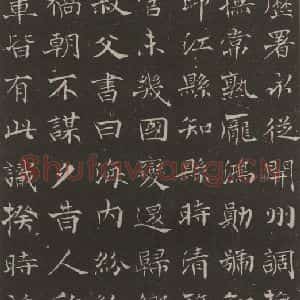 歷署永從開州調
撫常熟龐鴻勛
印江縣知縣時清
官未幾國變還歸
叔父書曰海內紛
禍朝不謀夕昔人
車皆有此識揆時
Shufawang.CN